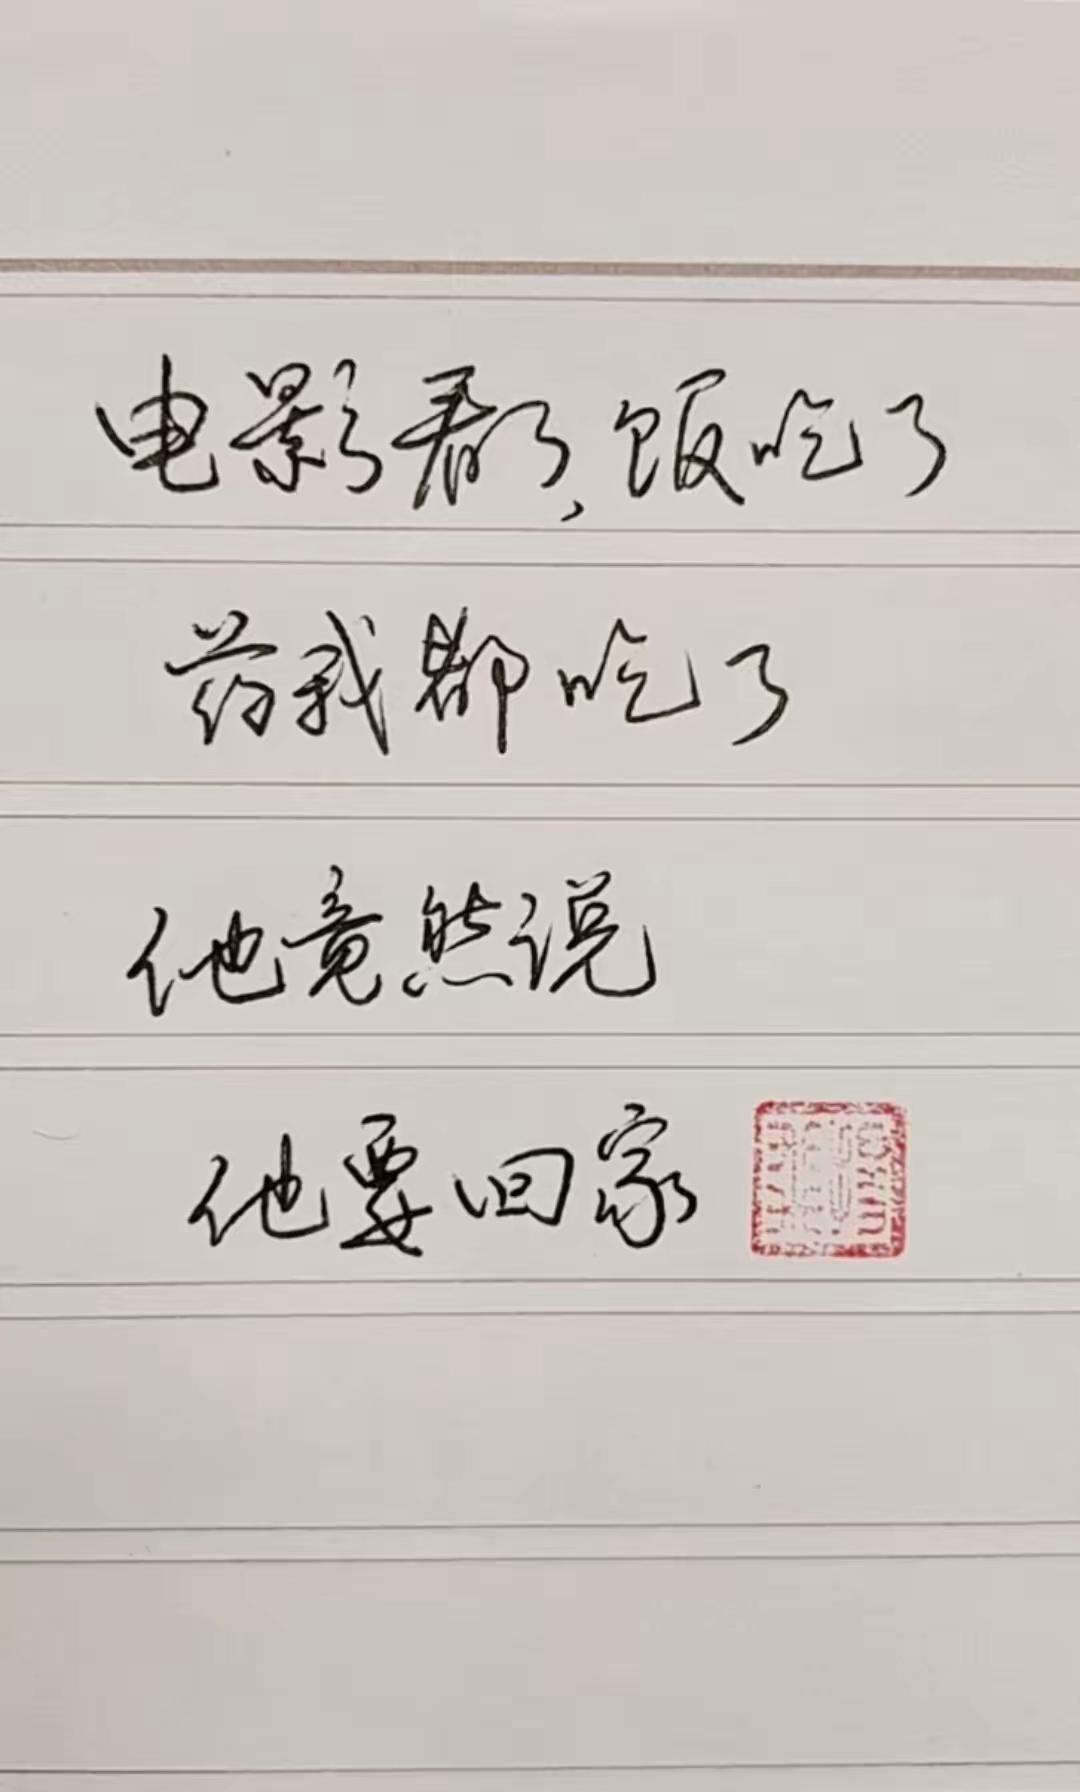 电影看了,饭吃了
药我都吃了
他竟然说
他要回家